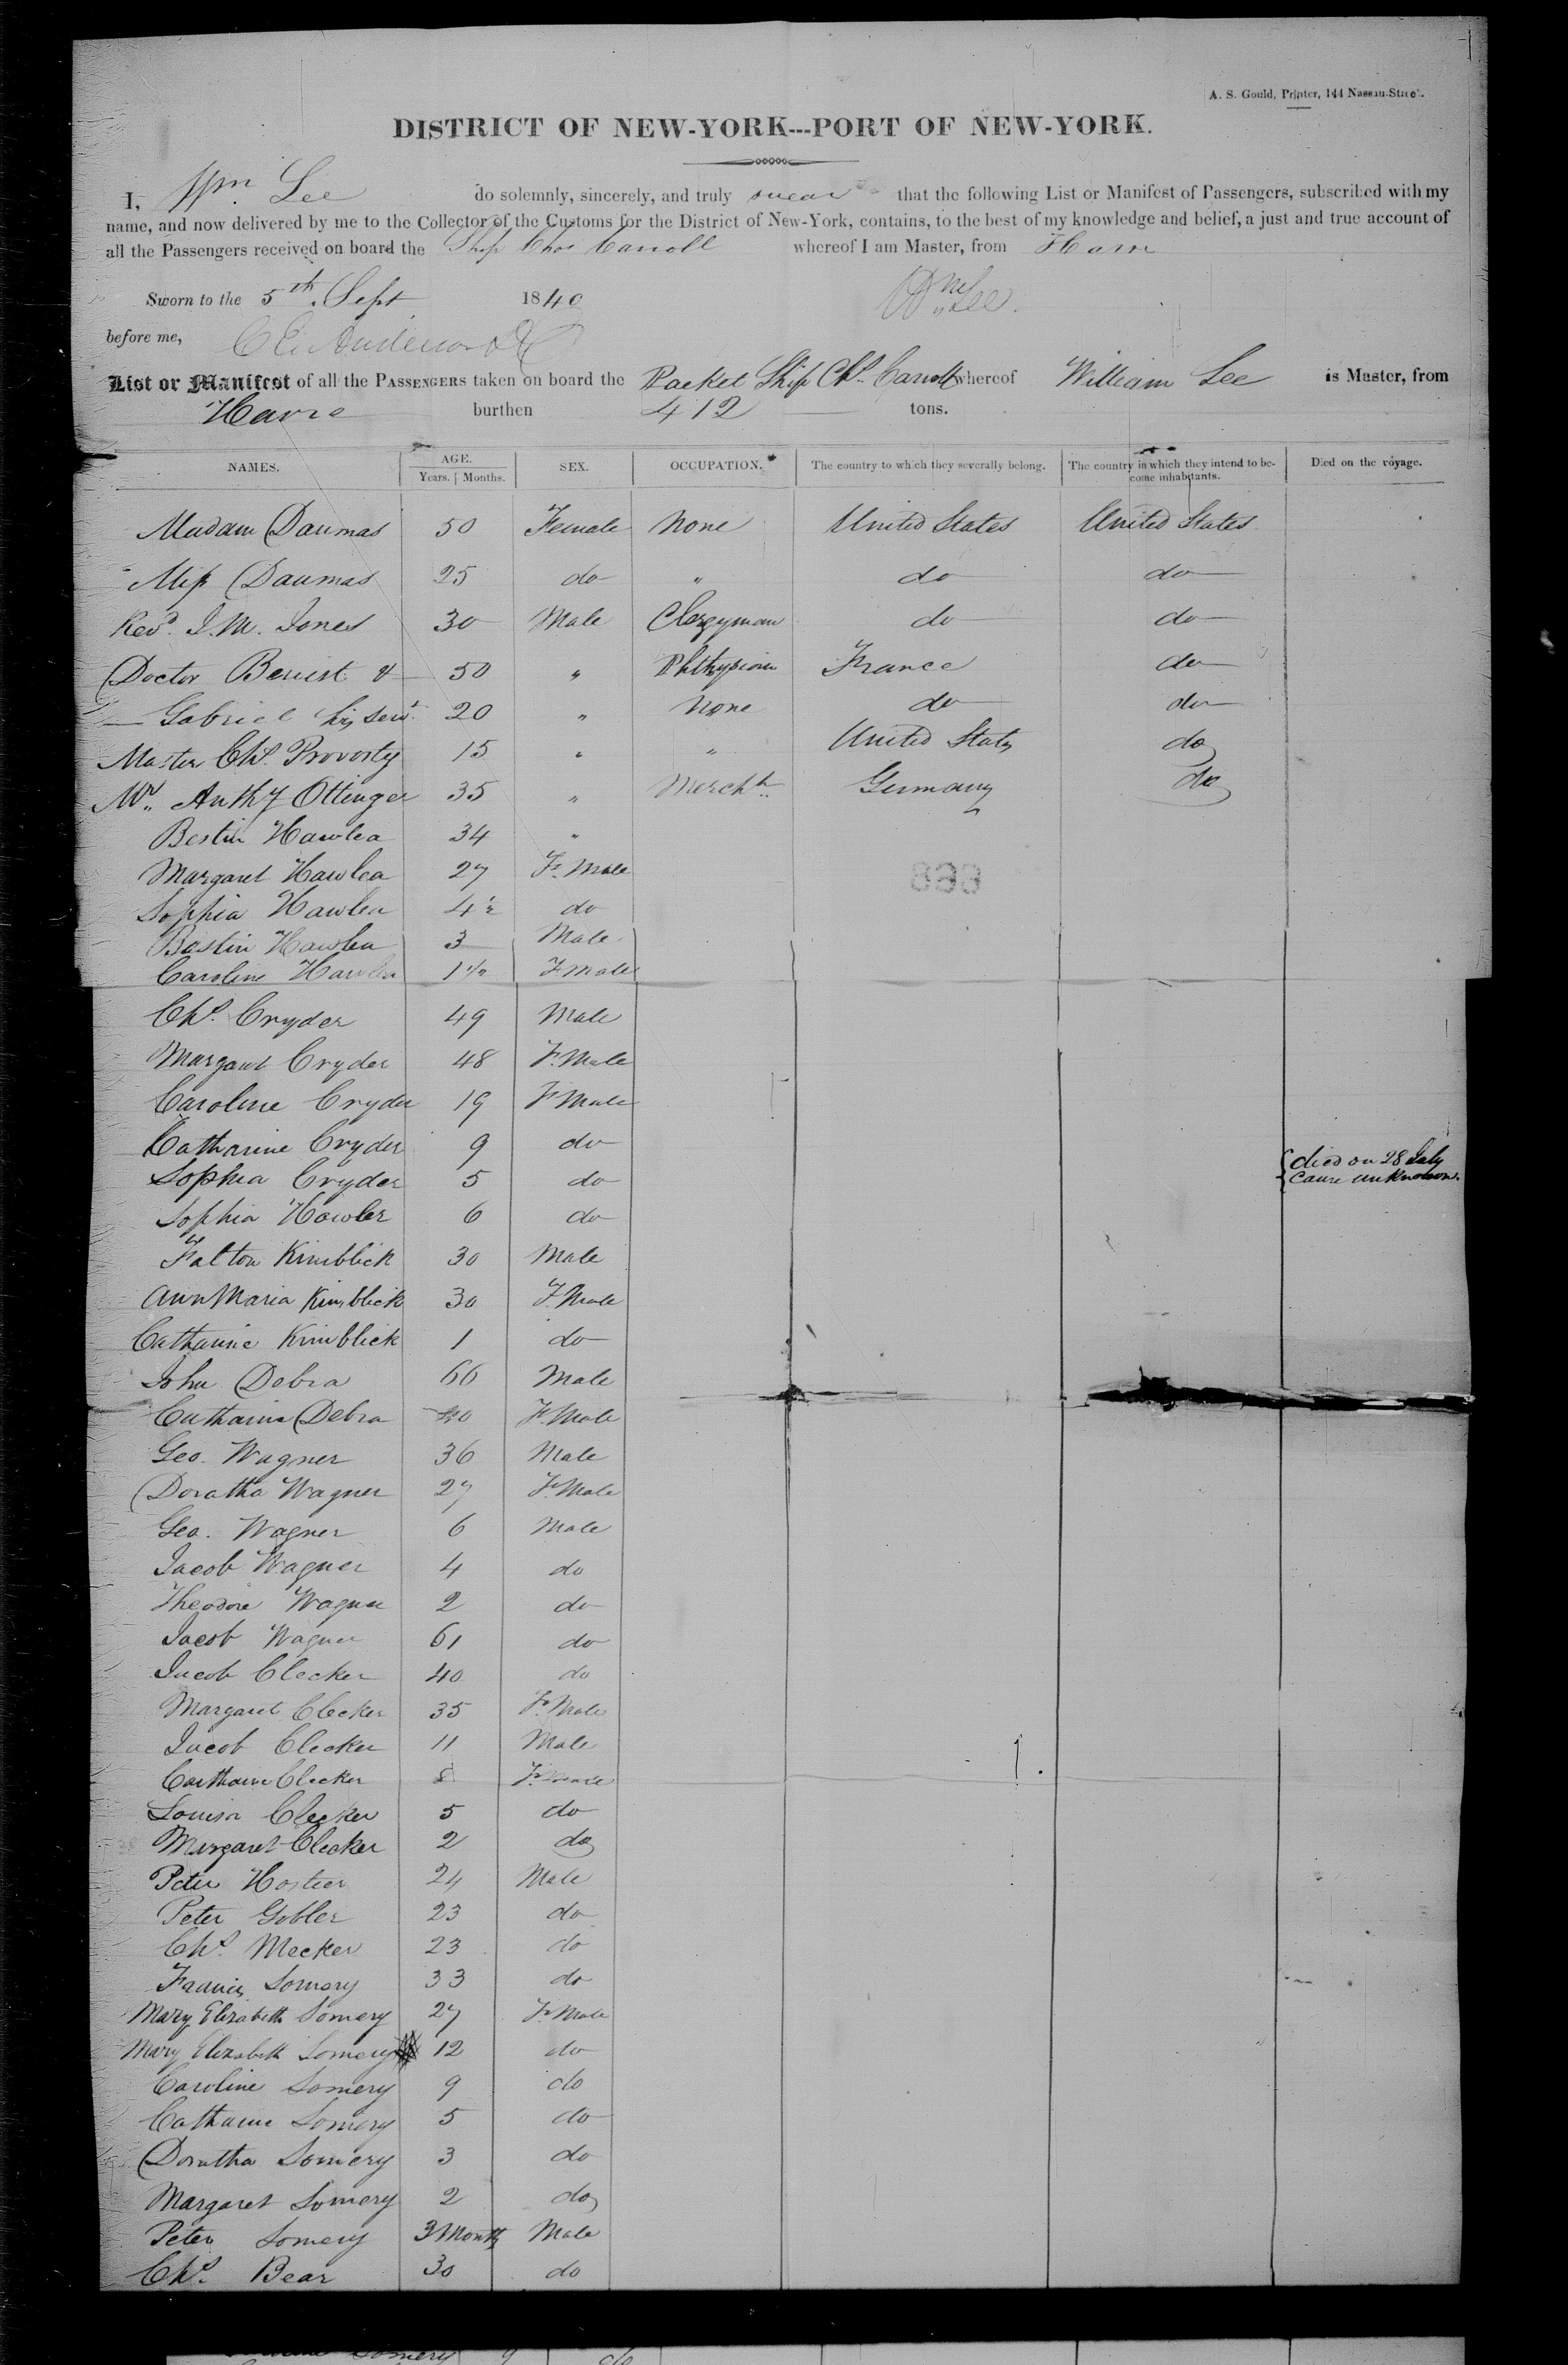 A. S. Gould, Printer, 144 Nassau-Street.
DISTRICT OF NEW-YORK---PORT OF NEW-YORK.
I, Wm. Lee do solemnly, sincerely, and truly swear that the following List or Manifest of Passengers, subscribed with my
name, and now delivered by me to the Collector of the Customs for the District of New-York, contains, to the best of my knowledge and belief, a just and true account of
all the Passengers received on board the Ship Chas Carroll whereof I am Master, from Havre
Sworn to the 5th. Sept 1840 Wm Lee.
before me,
List or Manifest of all the PASSENGERS taken on board the Packet Ship Chs. Carroll whereof William Lee is Master, from
Havre burthen 412 tons.
NAMES. AGE. Years. Months. SEX. OCCUPATION. The country to which they severally belong. The country in which they intend to become inhabitants. Died on the voyage.
Madam Daumas 50 Female None United States United States
Miss Daumas 25 do " do do
Revd. J. M. Jones 30 Male Clergyman do do
Doctor Benist & 50 " France do
Gabriel his servt. 20 " None do do
Master Chs. Provosty 15 " " United States do
Mr. Anthy Ottinger 35 " Mercht. Germany do
Bestin Hawlea 34 "
Margaret Hawlea 27 F. Male
Sophia Hawlea 4½ do
Bastin Hawlea 3 Male
Caroline Hawlea 1½ F Male
Chs. Cryder 49 Male
Margaret Cryder 48 F. Male
Caroline Cryder 19 F Male
Catharine Cryder 9 do
Sophia Cryder 5 do died on 28 July cause unknown.
Sophia Hawler 6 do
Falton Kimblick 30 Male
Ann Maria Kimblick 30 F. Male
Catharine Kimblick 1 do
John Debra 66 Male
Catharine Debra F. Male
Geo. Wagner 36 Male
Doratha Wagner 27 F. Male
Geo. Wagner 6 Male
Jacob Wagner 4 do
Theodore Wagner 2 do
Jacob Wagner 61 do
Jacob Clecker 40 do
Margaret Clecker 35 F. Male
Jacob Clecker 11 Male
Clecker 8 F. Male
Louisa Clecker 5 do
Margaret Clecker 2 do
Peter Hostier 24 Male
Peter Gobler 23 do
Chs. Mecker 23 do
Francis Somery 33 do
Mary Elizabeth Somery 27 F. Male
Mary Elizabeth Somery 12 do
Caroline Somery 9 do
Catharine Somery 5 do
Doratha Somery 3 do
Margaret Somery 2 do
Peter Somery 3 Months Male
Chs. Bear 30 do
Somery 9 do